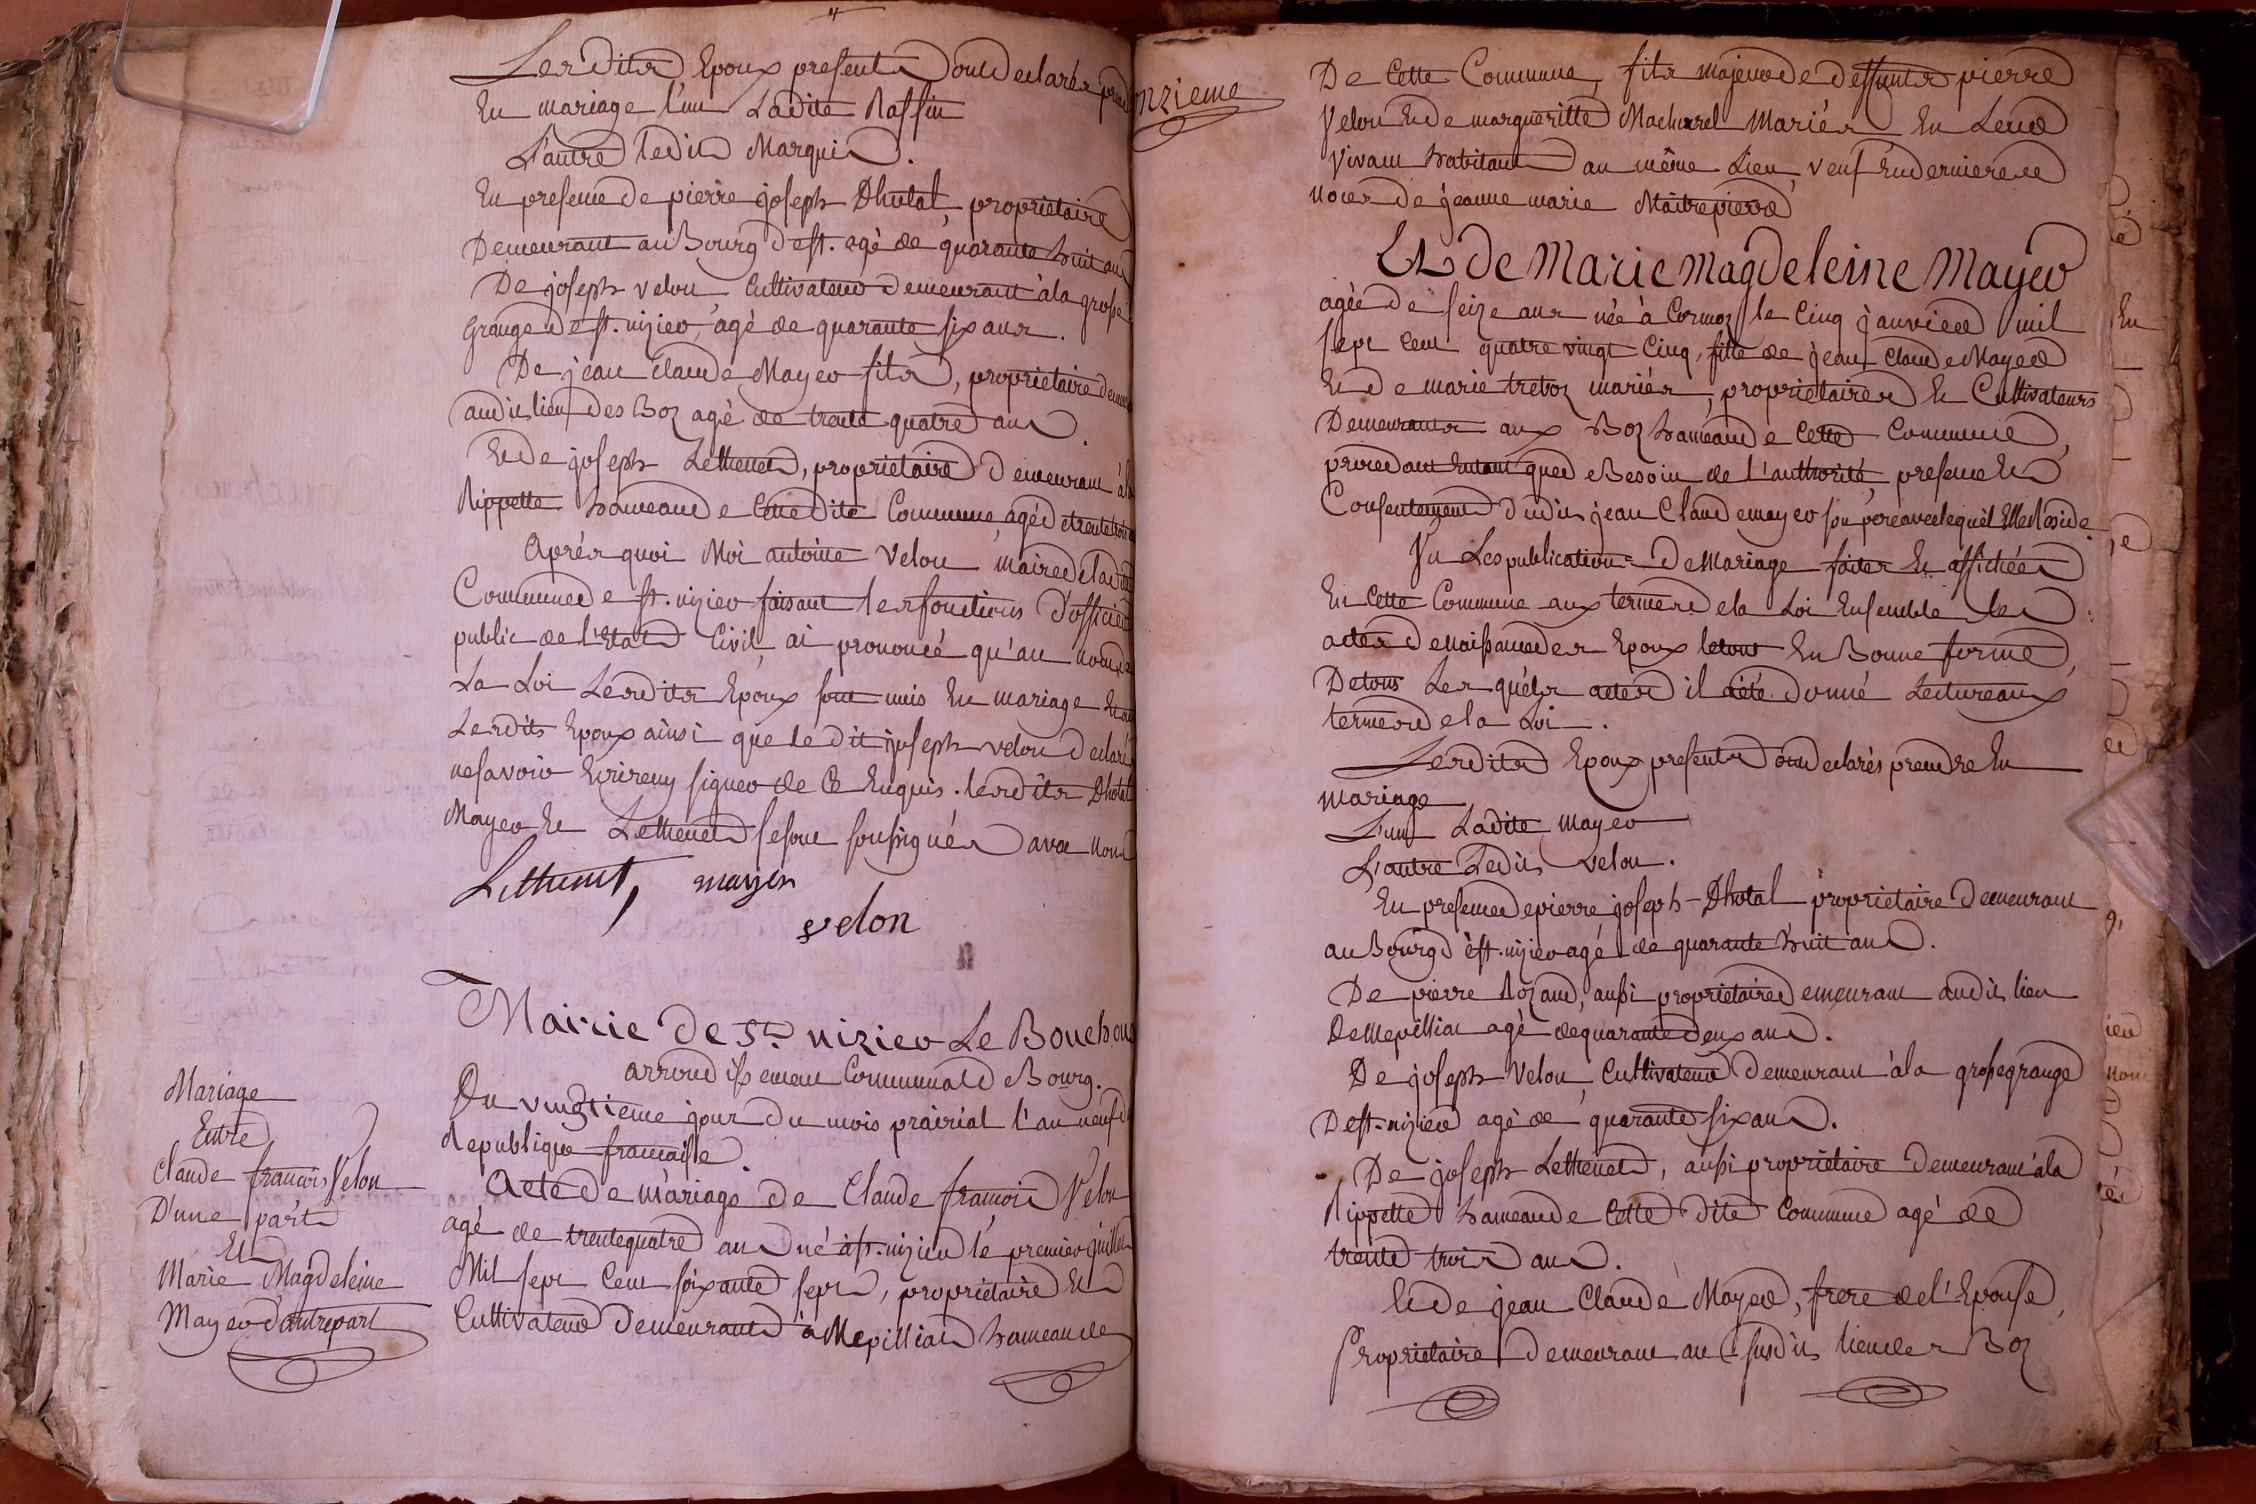 Lesdits Epoux presents ont declarés prend
En mariage l'un Ladite Raffin
L'autre ledit Marquis.
En presence de pierre joseph Dhotal, propriétaire
Demeurant au Bourg d'st. agé de quarante huit ans
De joseph velon Cultivateur demeurant à la grosse
Grange de st. nizier, agé de quarante six ans.
De jean claude Mayer fils, propriétaire demeu
audit lieu des Boz agé de trente quatre ans.
Et de joseph Lethenet, propriétaire demeurant à la
Rippette hameau de Cette dite Commune agé de trente trois
Aprés quoi Moi antoine velon maire de ladite
Commune de st. nizier faisant les fonctions d'officier
public de l'Etat Civil, ai prononcé qu'au nom de
La Loi Lesdits Epoux sont unis En mariage Et ont
Lesdits Epoux ainsi que le dit joseph velon declaré
ne savoir Ecrire ny signer de Ce Enquis. lesdits Dhotal
Mayer Et Lethenet se sont soussignés avec nous
Lethenet, mayer
velon
Mairie de St. nizier Le Bouchoux
arrondissement Communal de Bourg.
Du vingtieme jour du mois prairial l'an neuf
Republique francaise.
Acte de mariage de Claude francois Velon
agé de trente quatre ans né à st. nizier le premier juillet
Mil sept Cent soixante sept, propriétaire Et
Cultivateur demeurant à Mepilliat hameau de
Mariage
Entre
Claude francois Velon
D'une part
Et
Marie Magdeleine
Mayer d'autre part
onzieme
De Cette Commune, fils majeur de deffunts pierre
Velon Et de margueritte Machurel Mariés En Leur
Vivant habitants au même Lieu, veuf En derniere
noces de jeanne marie Maitrepierre
Et de Marie Magdeleine Mayer
agée de seize ans née à Cormoz le Cinq janvier mil
sept Cent quatre vingt Cinq, fille de jean Claude Mayer
Et de marie trevoz mariés, propriétaires Et Cultivateurs
Demeurants aux Boz hameau de Cette Commune,
procedant Entant que de Besoin de l'authorité, presence Et
Consentement dudit jean Claude mayer son pere avec lequel Elle Reside.
Vu Les publications de Mariage faites Et affichées
En Cette Commune aux termes de la Loi Ensemble les
actes de naissance des Epoux le tout En Bonne forme,
De tous Lesquels actes il a été donné Lecture aux
termes de la Loi.
Lesdits Epoux presents ont declarés prendre En
mariage
L'un Ladite mayer
L'autre Ledit velon.
En presence de pierre joseph Dhotal propriétaire demeurant
au Bourg de st. nizier agé de quarante huit ans.
De pierre Rozand, aussi propriétaire demeurant audit lieu
de Mepilliat agé de quarante deux ans.
De joseph Velon Cultivateur demeurant à la grosse grange
de st. nizier agé de quarante six ans.
De joseph Lethenet, aussi propriétaire demeurant à la
Rippette hameau de Cette dite Commune agé de
trente trois ans.
Et de jean Claude Mayer, frere de l'Epouse,
Propriétaire demeurant au susdit lieu des Boz